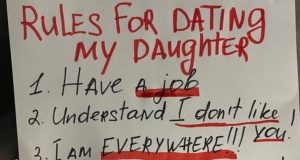 RULES FOR DATING
MY DAUGHTER
1. HAVE a job
2. Understand I don't like you!
3. I AM EVERYWHERE!!!